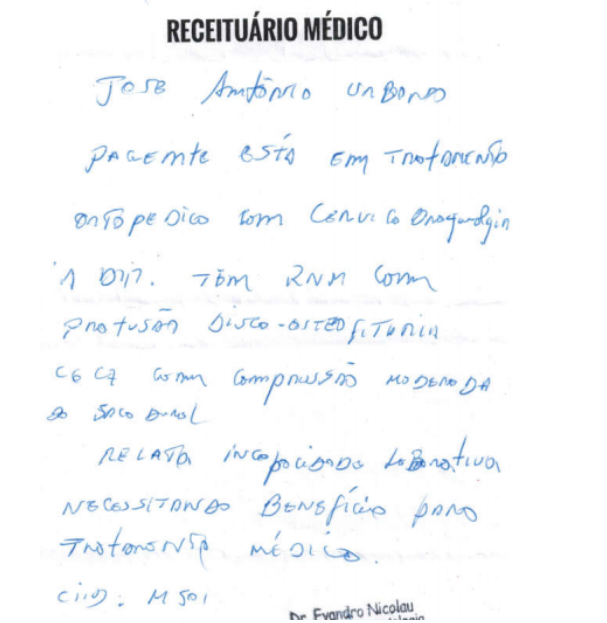 RECEITUÁRIO MÉDICO
JOSE Antônio URBANO
PACIENTE ESTÁ EM TRATAMENTO
ORTOPEDICO COM CERVICOBRAQUIALGIA
À DIR. TEM RNM COM
PROTUSÃO DISCO-OSTEOFITARIA
C6 C7 COM COMPRESSÃO MODERADA
DO SACO DURAL
RELATA INCAPACIDADE LABORATIVA
NECESSITANDO BENEFÍCIO PARA
TRATAMENTO MÉDICO.
CID: M501
Dr. Evandro Nicolau